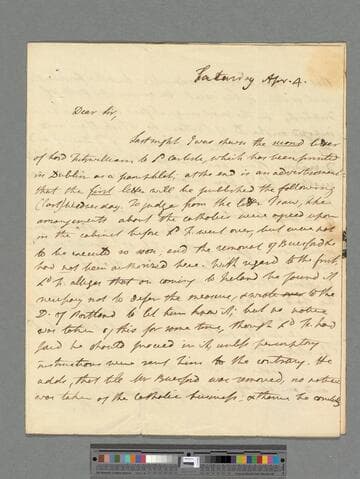 Saturday Apr. 4.
Dear Sir,
Last night I was shewn the second letter
of Lord Fitzwilliam to Ld Carlisle, which has been printed
in Dublin as a pamphlet; at the end is an advertisement
that the first letter will be published the following
(last) Wednesday. To judge from the letter I saw, the
arrangements about the Catholics were agreed upon
in the Cabinet before Ld F. went over, but were not
to be executed so soon; and the removal of Beresford
had not been authorized here. With regard to the first
Ld F. alleges that on coming to Ireland he found it
necessary not to defer the measure, & wrote over to the
D. of Portland to let him know it; but no notice
was taken of this for some time, though Ld F. had
said he should proceed in it unless peremptory
instructions were sent him to the contrary. He
adds, that till Mr Beresford was removed, no notice
was taken of the Catholic business; & thence he